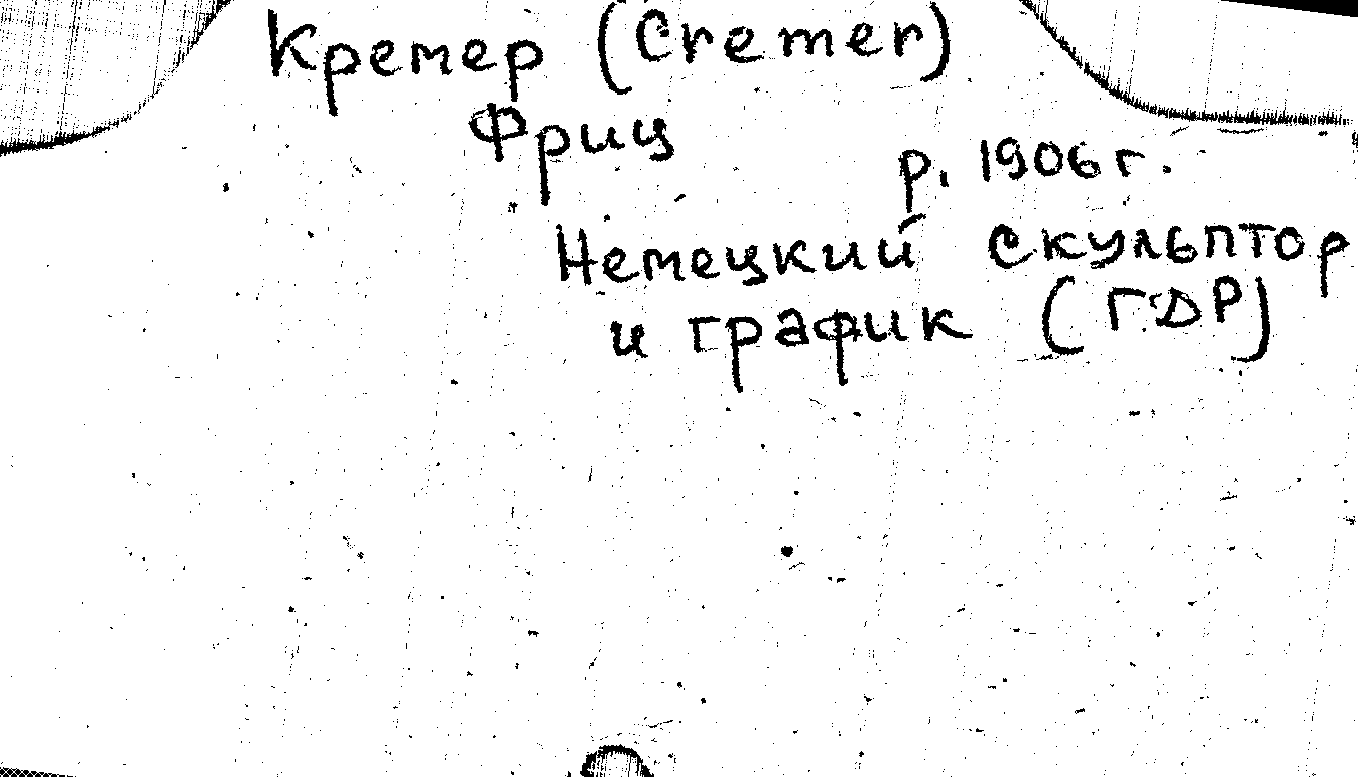 Кремер (Cremer)
Фриц
р. 1906 г.
Немецкий скульптор
и график (ГДР)